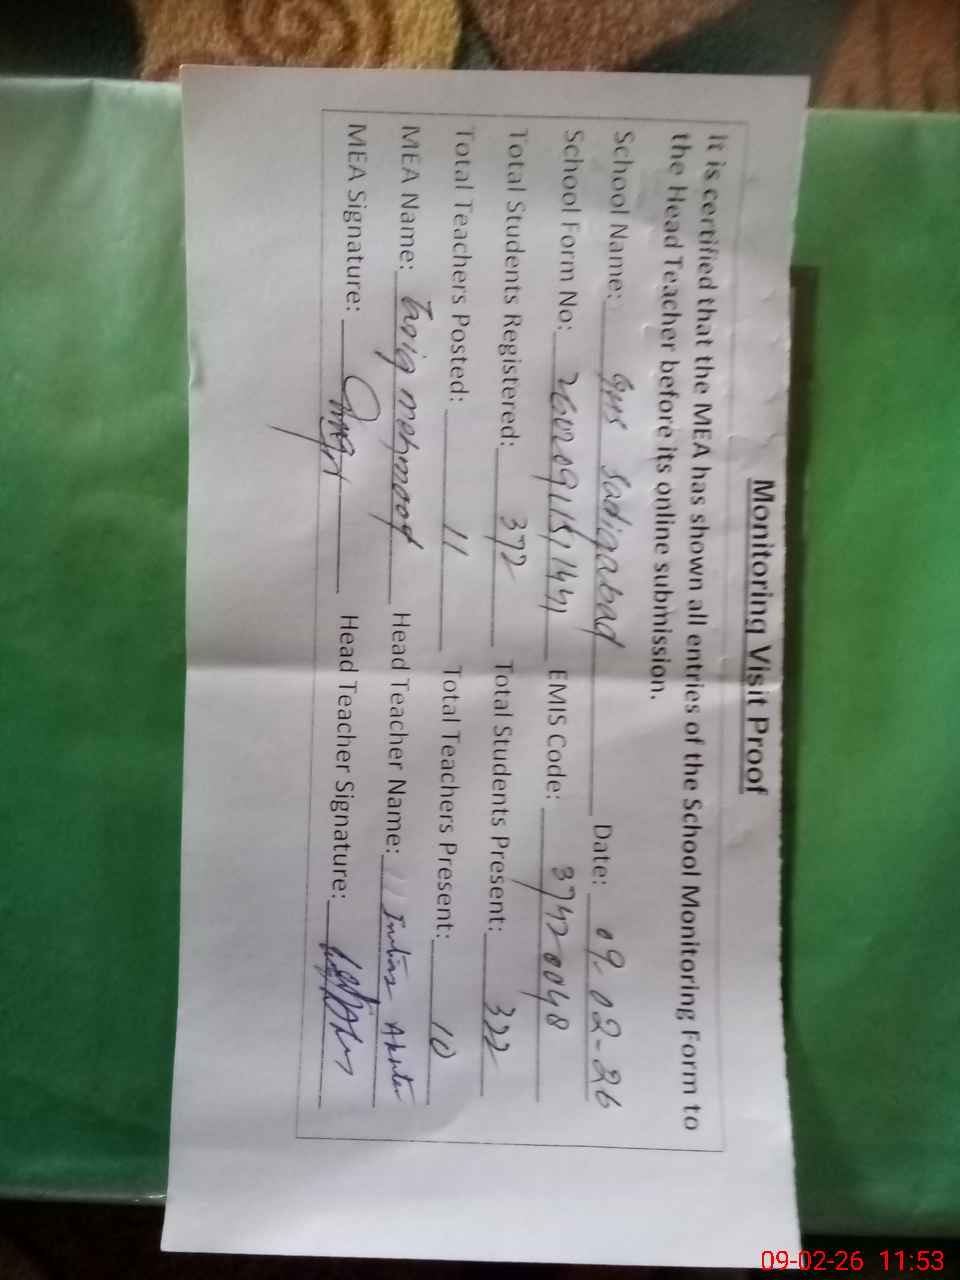 Monitoring Visit Proof
It is certified that the MEA has shown all entries of the School Monitoring Form to
the Head Teacher before its online submission.
School Name: Sadiqabad Date: 09-02-26
School Form No: EMIS Code: 37420048
Total Students Registered: 372 Total Students Present: 322
Total Teachers Posted: 11 Total Teachers Present: 10
MEA Name: Tariq mehmood Head Teacher Name: Imtiaz Akhter
MEA Signature: Head Teacher Signature:
09-02-26 11:53